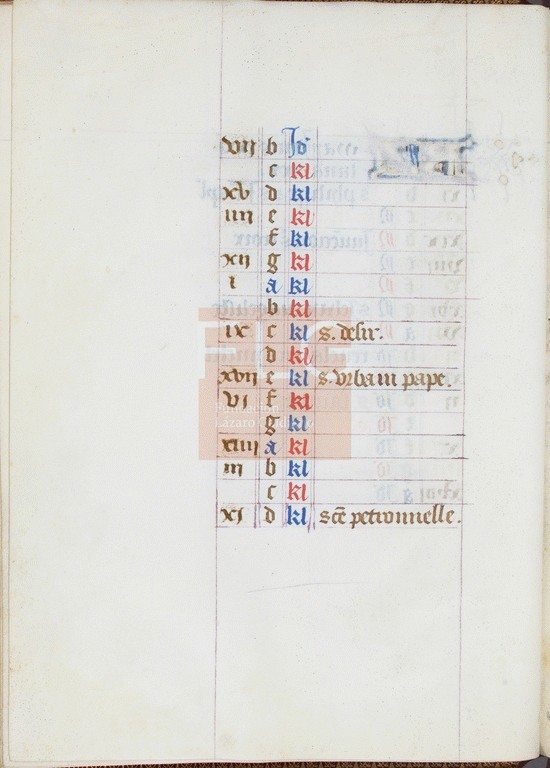 vij b Id
c kl
xv d kl
iiij e kl
f kl
xij g kl
i a kl
b kl
ix c kl s. desir.
d kl
xvij e kl s. vrbain pape.
vj f kl
g kl
xiiij a kl
iij b kl
c kl
xj d kl sce petronnelle.
Fundación
Lázaro